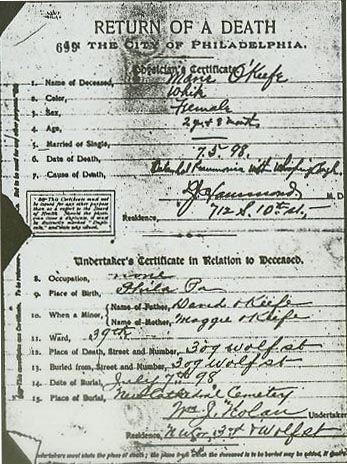 RETURN OF A DEATH
IN THE CITY OF PHILADELPHIA.
Physician's Certificate.
1. Name of Deceased, Marie O'Keefe
2. Color, White
3. Sex, Female
4. Age, 2 yrs & 8 months
5. Married or Single,
6. Date of Death, 7.5.98.
7. Cause of Death, Pneumonia with Whooping Cough
This Certificate must
not be issued for any other purpose
M. D.
Residence, 712 S. 10th st,
Undertaker's Certificate in Relation to Deceased.
8. Occupation, none
9. Place of Birth, Phila Pa
10. When a Minor, Name of Father, David O'Keefe
Name of Mother, Maggie O'Keefe
11. Ward, 39th
12. Place of Death, Street and Number, 309 Wolf st
13. Buried from, Street and Number, 309 Wolf st
14. Date of Burial, July 7th 98
15. Place of Burial, New Cathedral Cemetery
Wm J. Nolan Undertaker
Residence, N.W. Cor, 3rd & Wolf st